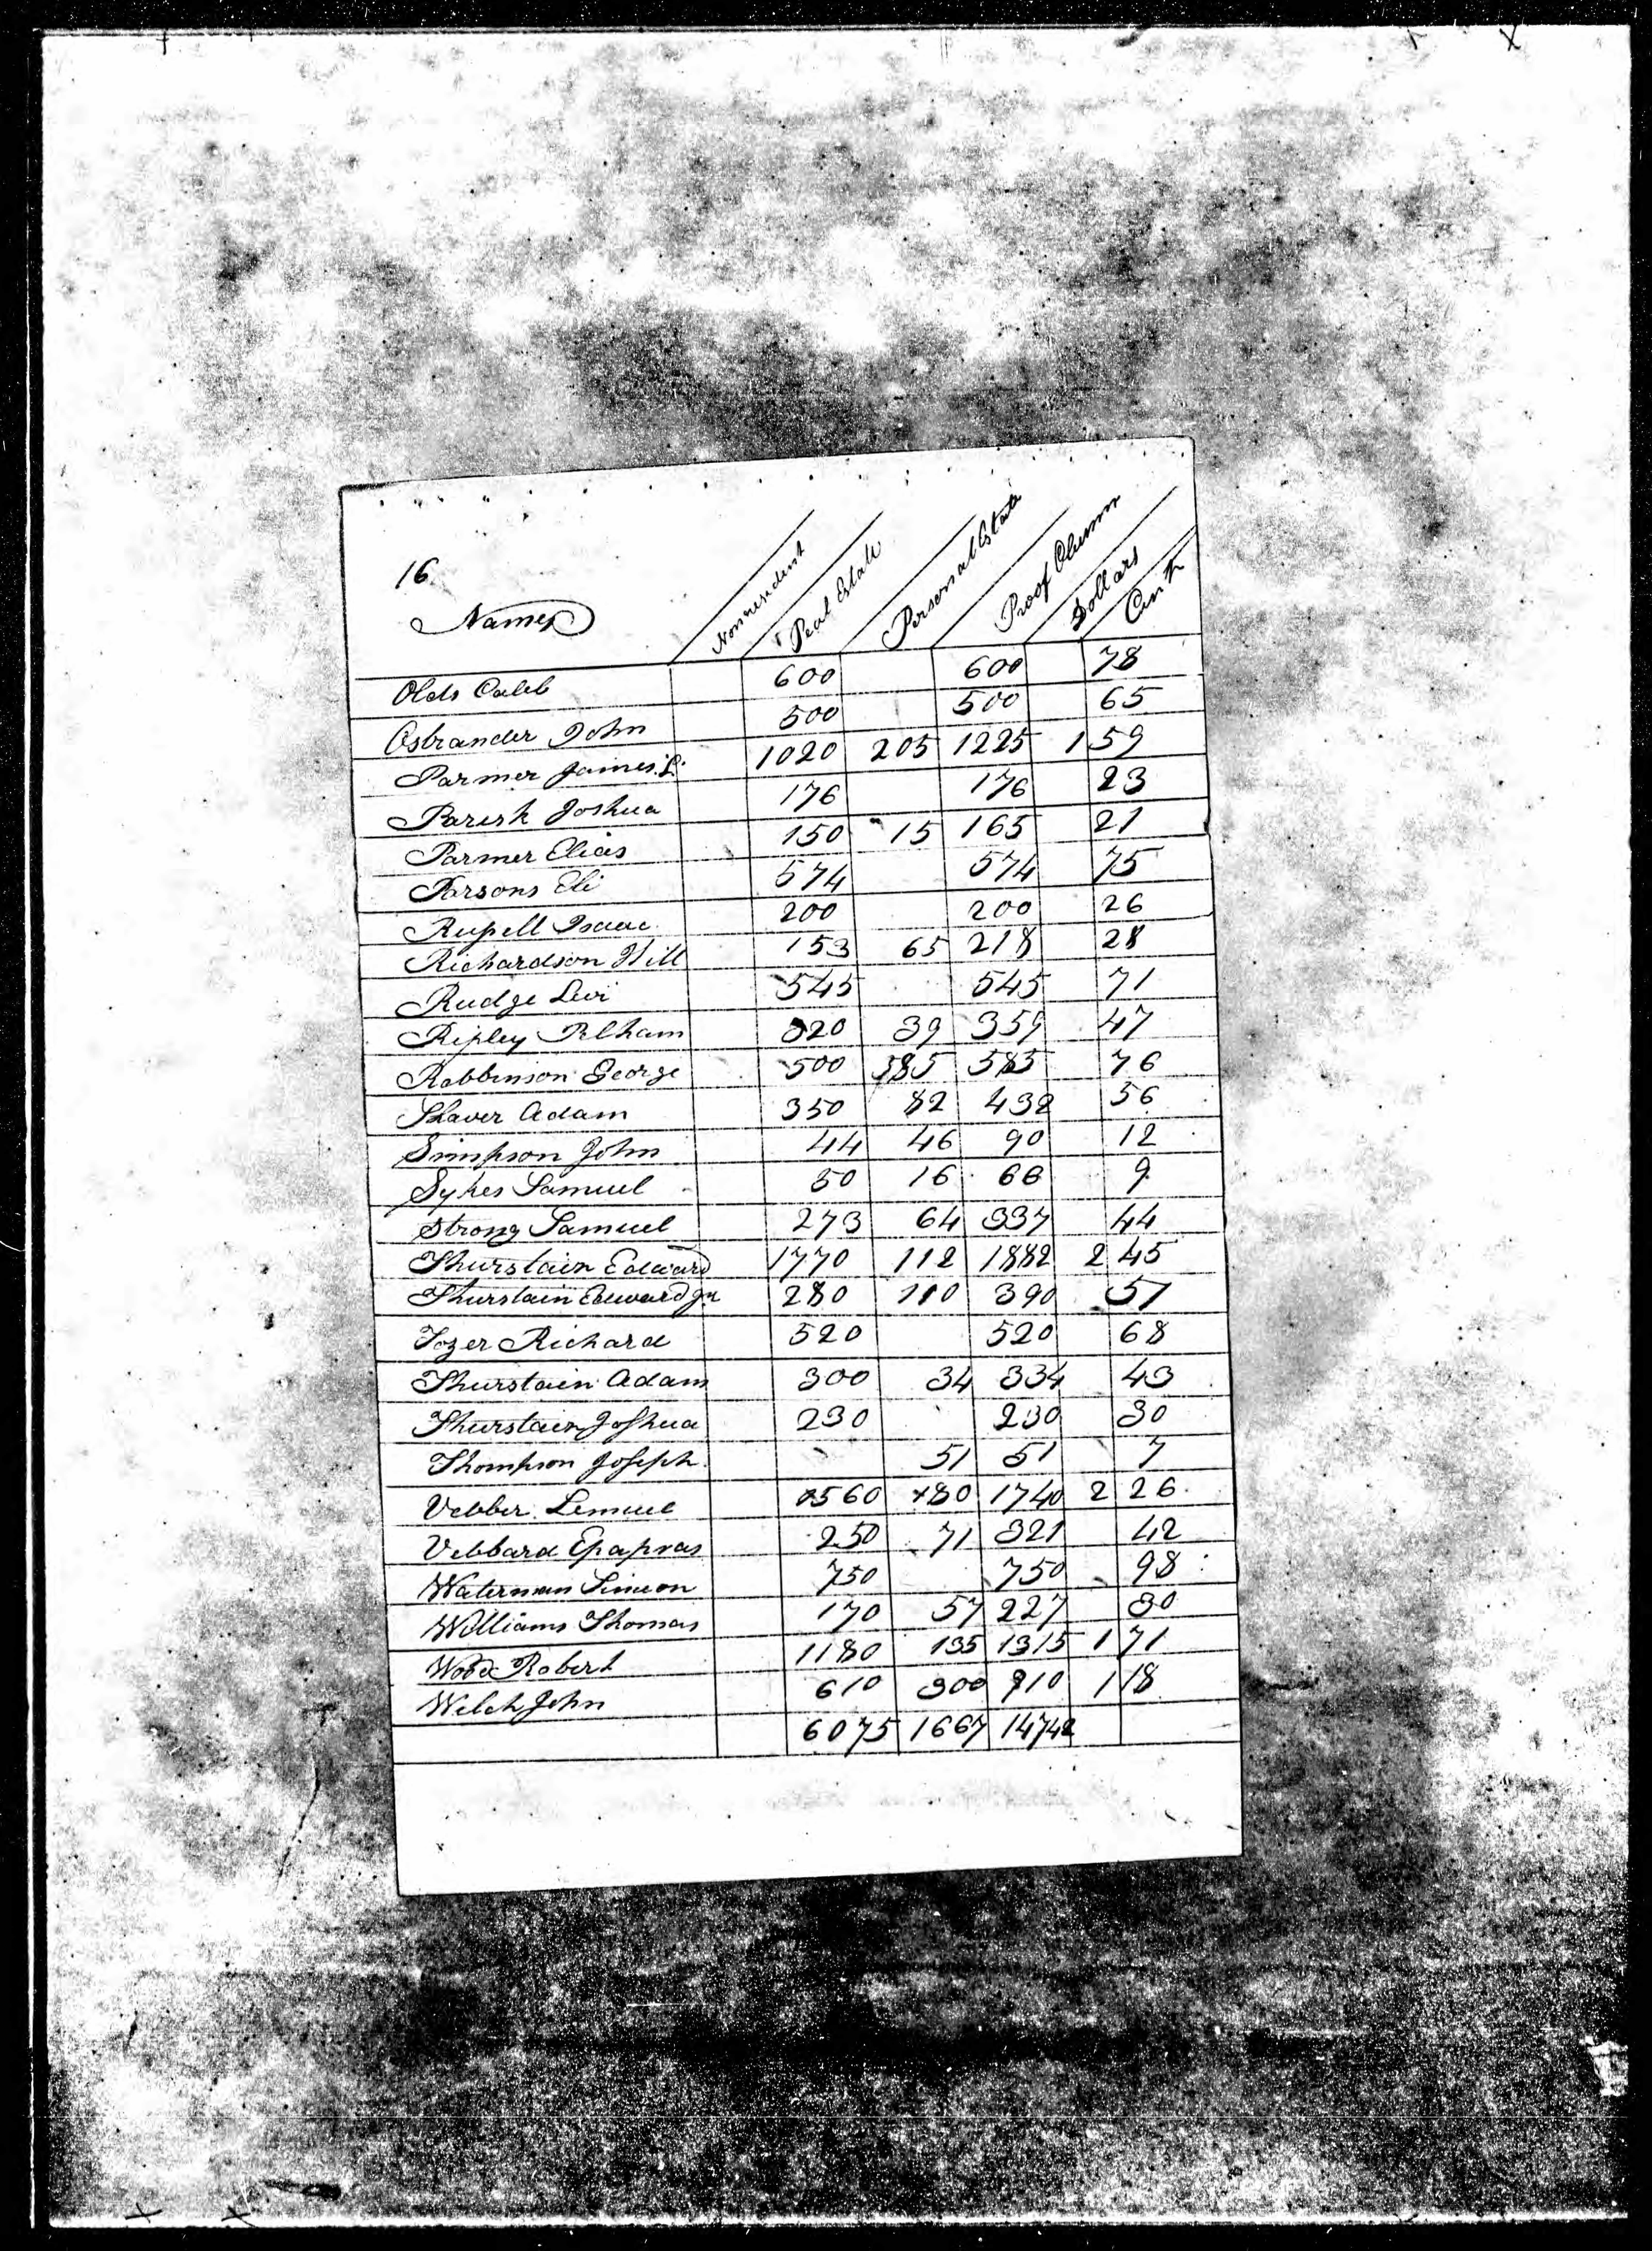 16
Names Nonresident Real Estate Personal Estate Proof Column Dollars Cents
Olds Caleb 600 600 78
Ostrander John 500 500 65
Parmer James L. 1020 205 1225 1 59
Parish Joshua 176 176 23
Parmer Elias 150 15 165 21
Parsons Eli 574 574 75
Russell Isaac 200 200 26
Richardson Will 153 65 218 28
Rudge Levi 545 545 71
Ripley Pelham 320 39 359 47
Robbinson George 500 585 76
Shaver Adam 350 82 432 56
Simpson John 44 46 90 12
Sykes Samuel 50 16 66 9
Strong Samuel 273 64 337 44
Thurstain Edward 1770 112 1882 2 45
Thurstain Edward Jn 280 110 390 51
Tozer Richard 520 520 68
Thurstain Adam 300 34 334 43
Thurstain Joshua 230 230 30
Thompson Joseph 51 51 7
Vebber Lemuel 1560 180 1740 2 26
Vebbard Epapras 250 71 321 42
Waterman Simeon 750 750 98
Williams Thomas 170 57 227 30
Wood Robert 1180 135 1315 1 71
Welch John 610 300 910 1 18
6075 1667 14742